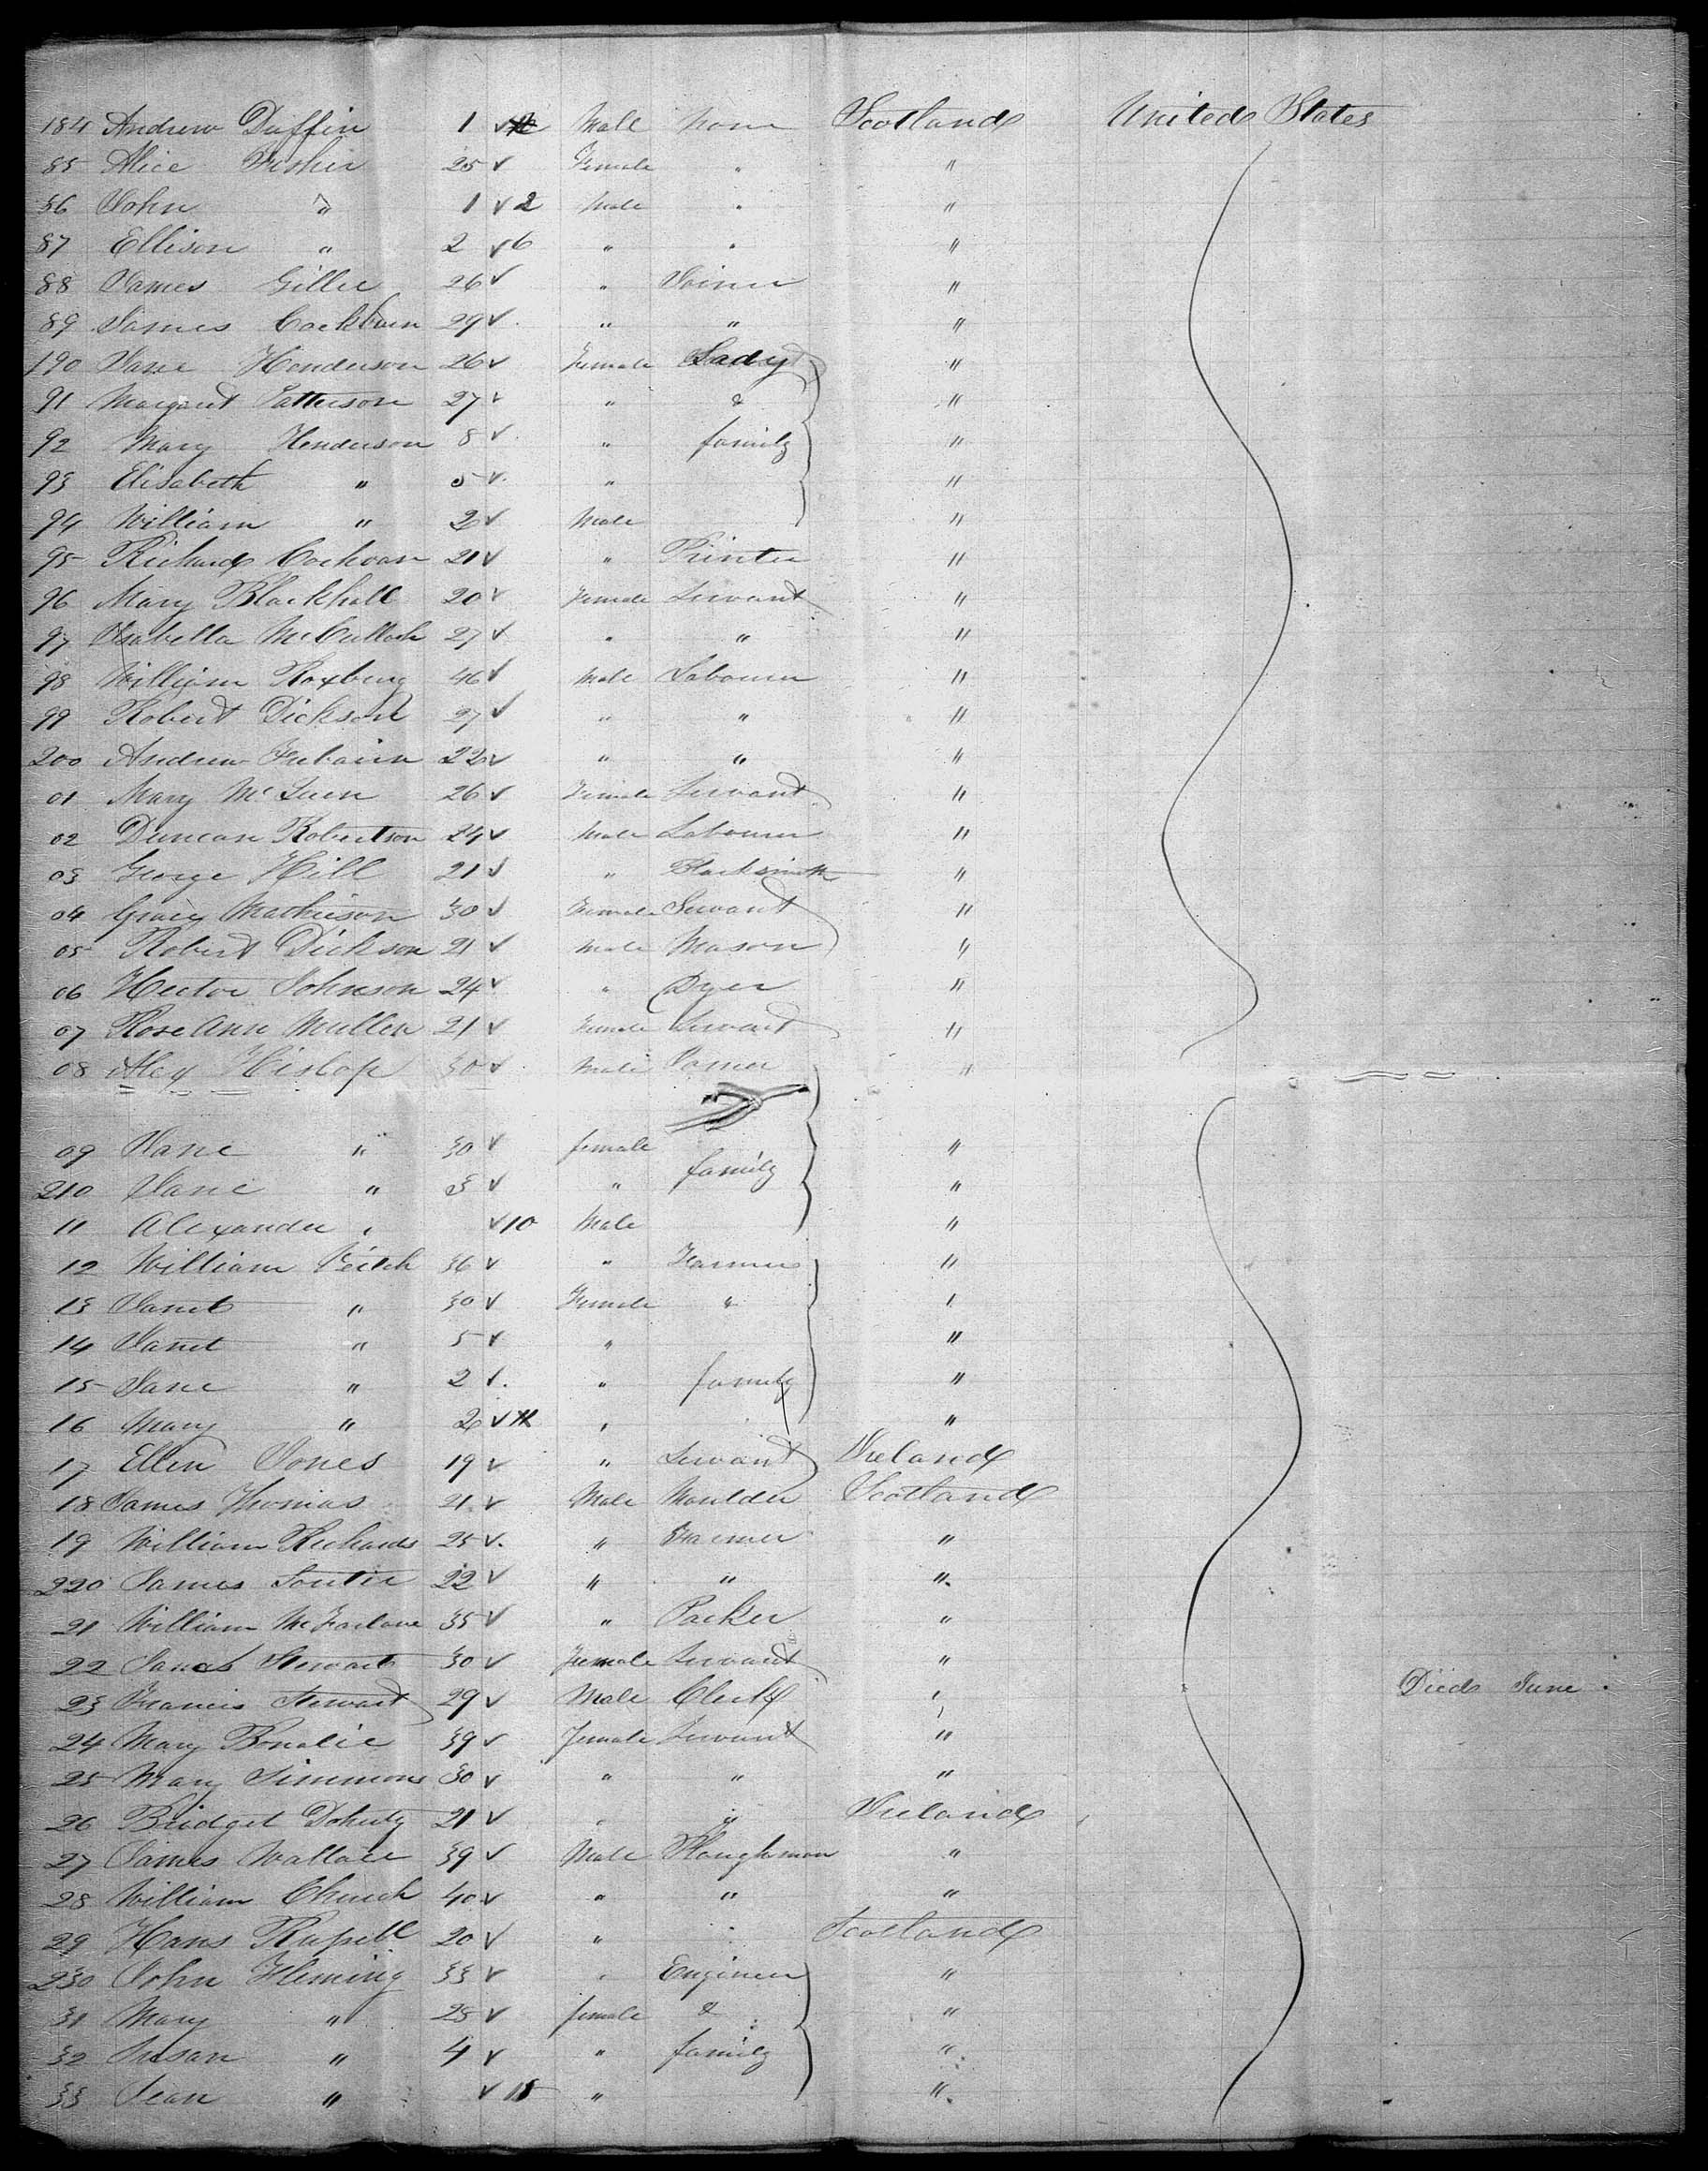 184 Andrew Duffin 1 ✓ Male None Scotland United States
85 Alice Fisher 25 ✓ Female " "
86 John " 1 ✓ 2 Male " "
87 Ellison " 2 ✓ 6 " " "
88 James Gillie 26 ✓ " Joiner "
89 James Cockburn 29 ✓ " " "
190 Jane Henderson 26 ✓ Female Lady "
91 Margaret Patterson 27 ✓ " & "
92 Mary Henderson 8 ✓ " family "
93 Elisabeth " 5 ✓ " "
94 William " 2 ✓ Male "
95 Richard Cochran 21 ✓ " Printer "
96 Mary Blackhall 20 ✓ Female Servant "
97 Isabella McCulloch 27 ✓ " " "
98 William Roxburg 46 ✓ Male Labourer "
99 Robert Dickson 27 ✓ " " "
200 Andrew 22 ✓ " " "
01 Mary McQueen 26 ✓ Female Servant "
02 Duncan Robertson 24 ✓ Male Labourer "
03 George Hill 21 ✓ " Blacksmith "
04 Gracey Mathieson 30 ✓ Female Servant "
05 Robert Dickson 21 ✓ Male Mason "
06 Hector Johnson 24 ✓ " Dyer "
07 Rose Ann Mullen 21 ✓ Female Servant "
08 Alex Hislop 30 ✓ Male "
09 Jane " 30 ✓ female "
210 Jane " 3 ✓ " family "
11 Alexander " ✓ 10 Male "
12 William Veitch 36 ✓ " Farmer "
13 Janet " 30 ✓ Female & "
14 Janet " 5 ✓ " "
15 Jane " 2 ✓ " family "
16 Mary " 2 ✓ " "
17 Ellen Jones 19 ✓ " Servant Ireland
18 James Thomas 21 ✓ Male Moulder Scotland
19 William Richards 25 ✓ " Farmer "
220 James Soutie 22 ✓ " " "
21 William McFarlane 35 ✓ " Packer "
22 Janet Stewart 30 ✓ Female Servant "
23 Francis Stewart 29 ✓ Male Clerk " Died June
24 Mary 39 ✓ Female Servant "
25 Mary Simmons 30 ✓ " " "
26 Bridget Doherty 21 ✓ " " Ireland
27 James Wallace 39 ✓ Male Ploughman "
28 William Church 40 ✓ " " "
29 Hans Russell 20 ✓ " " Scotland
230 John Fleming 33 ✓ " Engineer "
31 Mary " 28 ✓ female & "
32 Susan " 4 ✓ " family "
33 Jean " ✓ " "